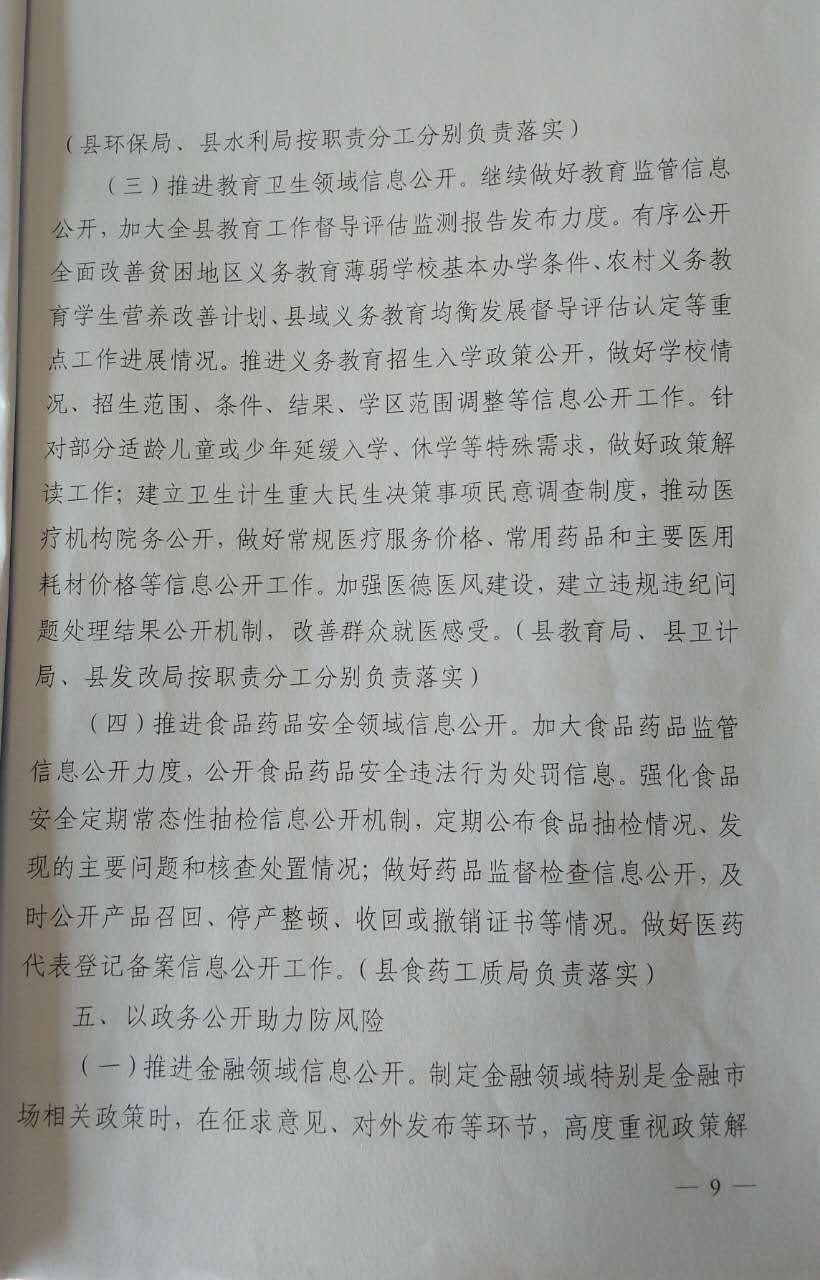 （县环保局、县水利局按职责分工分别负责落实）
（三）推进教育卫生领域信息公开。继续做好教育监管信息
公开，加大全县教育工作督导评估监测报告发布力度。有序公开
全面改善贫困地区义务教育薄弱学校基本办学条件、农村义务教
育学生营养改善计划、县域义务教育均衡发展督导评估认定等重
点工作进展情况。推进义务教育招生入学政策公开，做好学校情
况、招生范围、条件、结果、学区范围调整等信息公开工作。针
对部分适龄儿童或少年延缓入学、休学等特殊需求，做好政策解
读工作；建立卫生计生重大民生决策事项民意调查制度，推动医
疗机构院务公开，做好常规医疗服务价格、常用药品和主要医用
耗材价格等信息公开工作。加强医德医风建设，建立违规违纪问
题处理结果公开机制，改善群众就医感受。（县教育局、县卫计
局、县发改局按职责分工分别负责落实）
（四）推进食品药品安全领域信息公开。加大食品药品监管
信息公开力度，公开食品药品安全违法行为处罚信息。强化食品
安全定期常态性抽检信息公开机制，定期公布食品抽检情况、发
现的主要问题和核查处置情况；做好药品监督检查信息公开，及
时公开产品召回、停产整顿、收回或撤销证书等情况。做好医药
代表登记备案信息公开工作。（县食药工质局负责落实）
五、以政务公开助力防风险
（一）推进金融领域信息公开。制定金融领域特别是金融市
场相关政策时，在征求意见、对外发布等环节，高度重视政策解
— 9 —